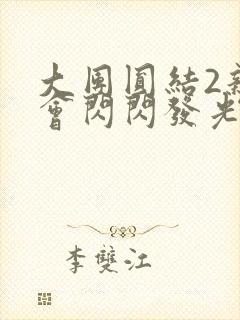 大團圓結2新
會閃閃發光
李雙江